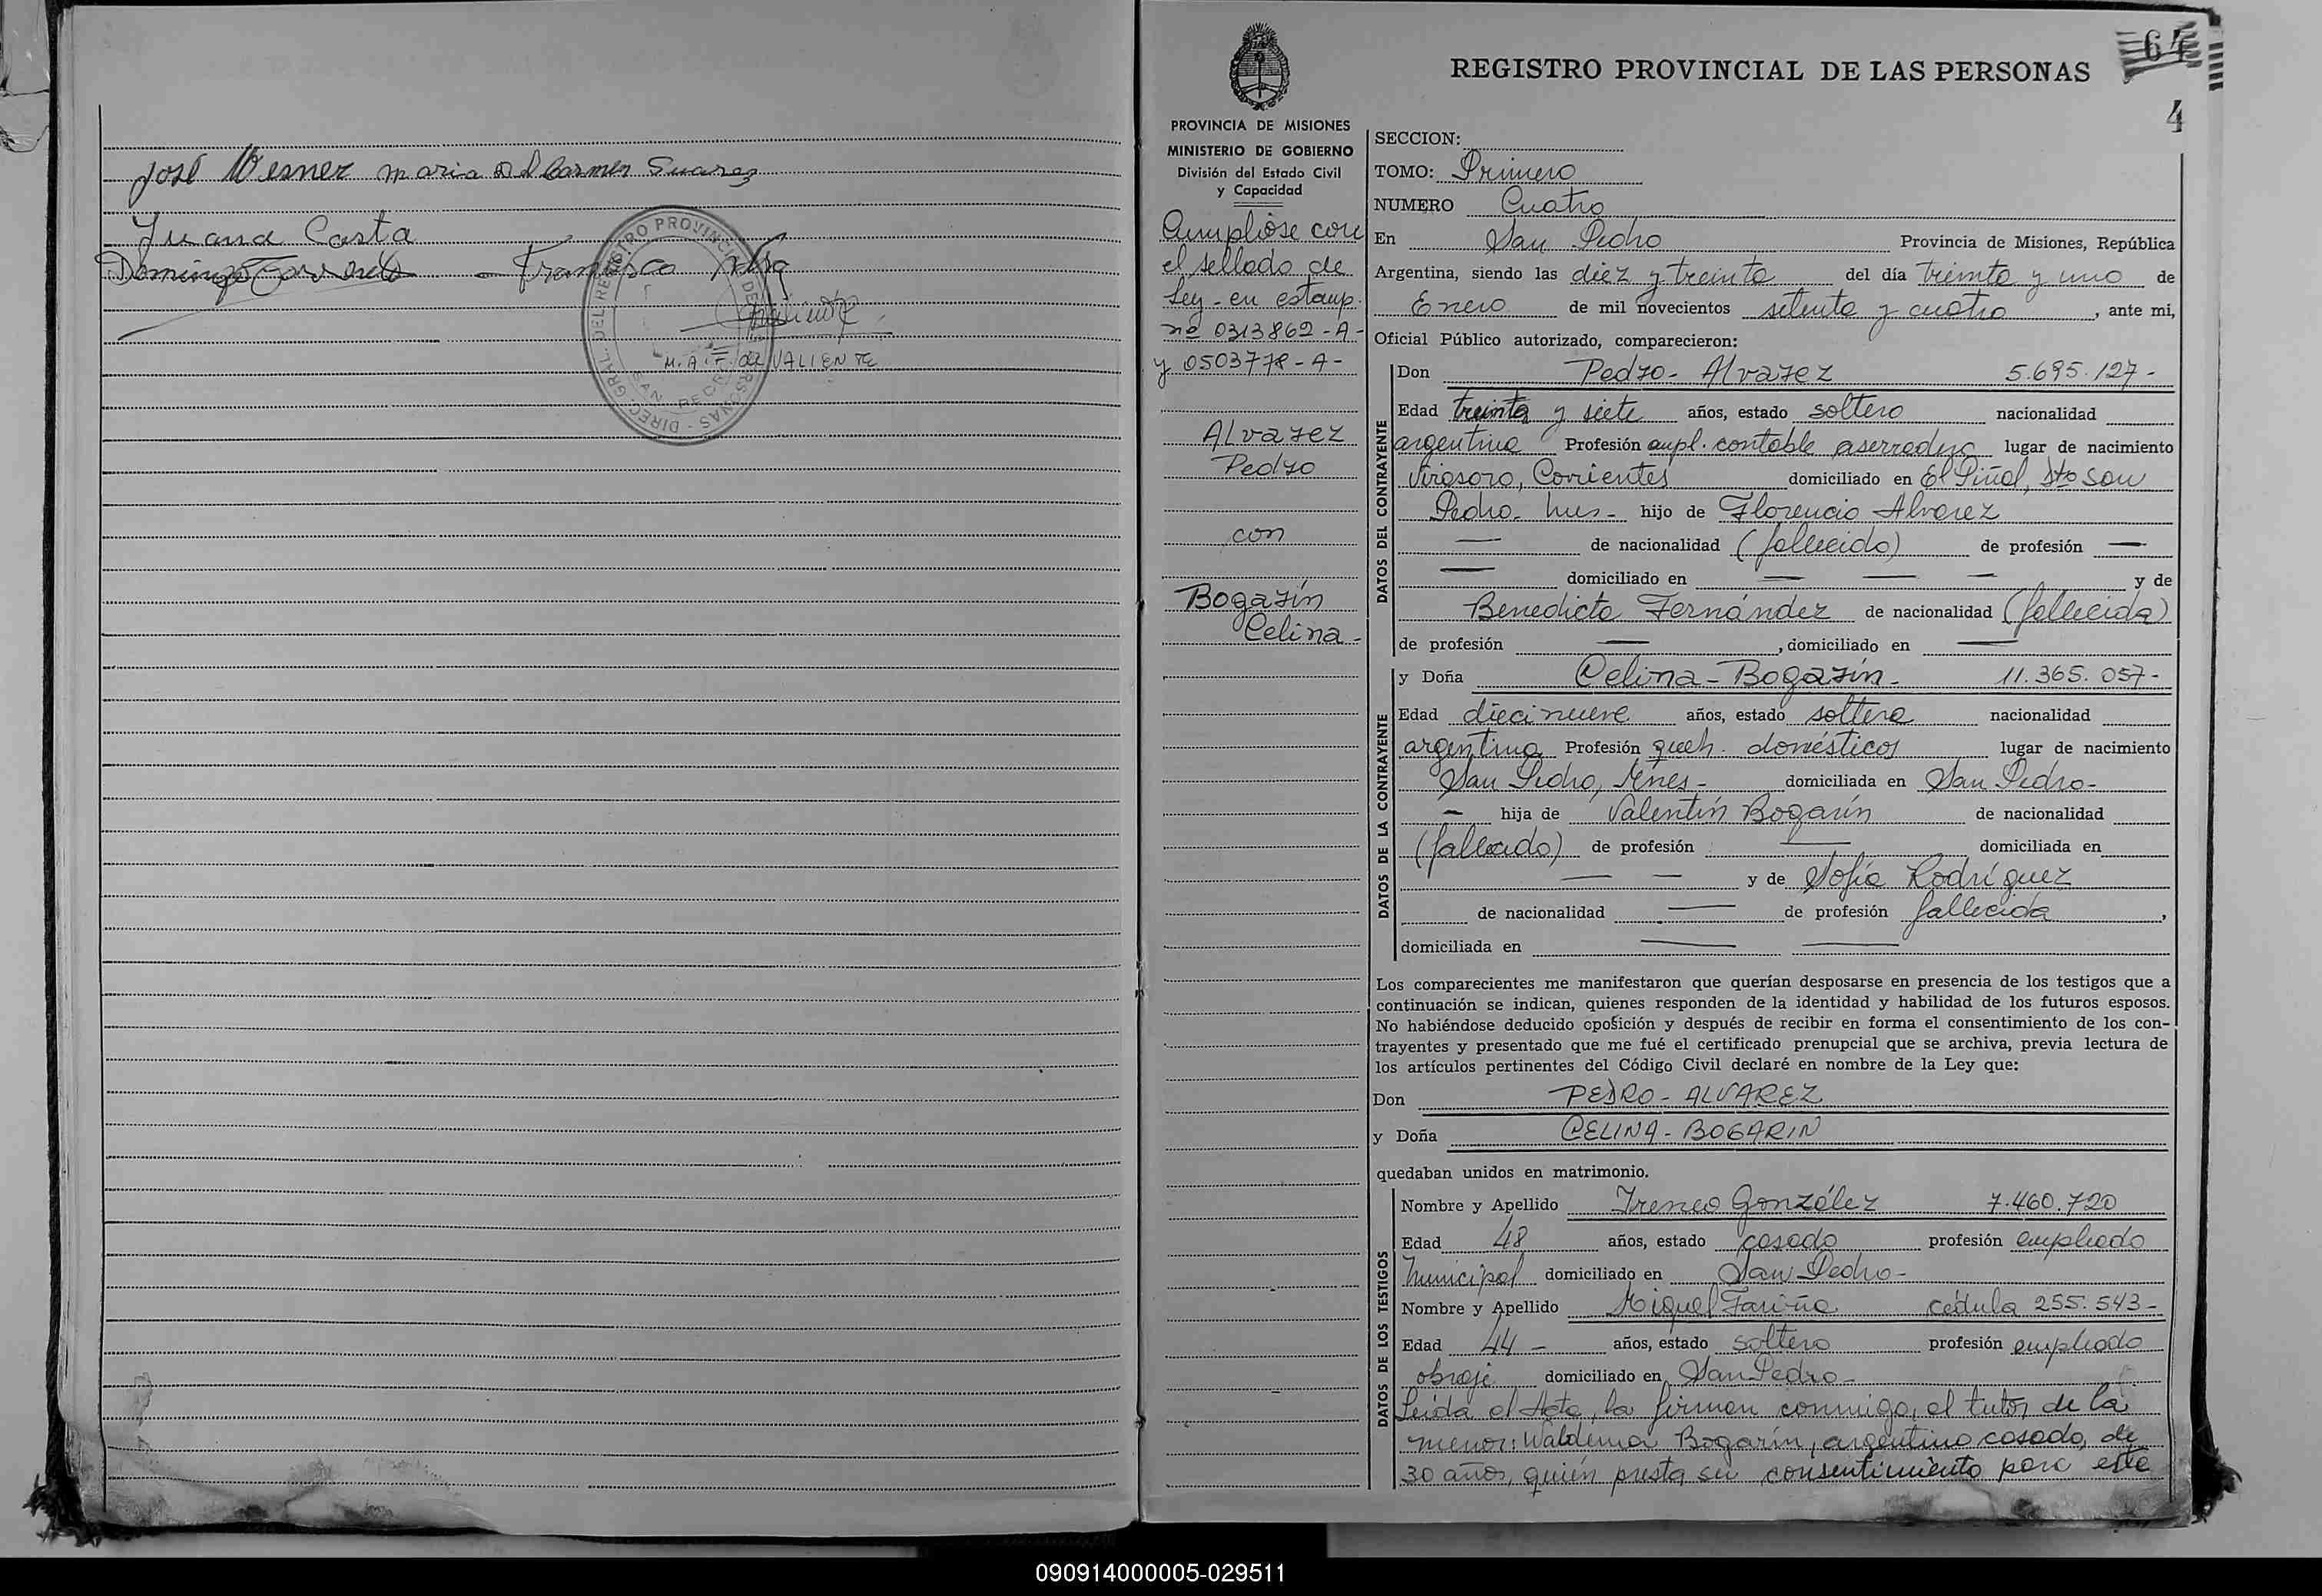 José Wesner maria Del Carmen Suarez
Juana Costa
Domingo
Francisco
M.A.F. de VALIENTE
DIREC. GRAL. DEL REGISTRO PROVINCIAL DE LAS PERSONAS
SAN PEDRO
64
REGISTRO PROVINCIAL DE LAS PERSONAS
4
PROVINCIA DE MISIONES
MINISTERIO DE GOBIERNO
División del Estado Civil
y Capacidad
Ampliose con
el sellado de
Ley - en estamp.
nº 0313862 - A -
y 0503778 - A -
Alvarez
Pedro
con
Bogarín
Celina -
SECCION:
TOMO: Primero
NUMERO Cuatro
En San Pedro Provincia de Misiones, República
Argentina, siendo las diez y treinta del día treinta y uno de
Enero de mil novecientos setenta y cuatro, ante mi,
Oficial Público autorizado, comparecieron:
DATOS DEL CONTRAYENTE
Don Pedro - Alvarez 5.695.127 -
Edad treinta y siete años, estado soltero nacionalidad
argentina Profesión empl. contable aserradero lugar de nacimiento
Virasoro, Corrientes domiciliado en El Piñal, Dto San
Pedro - Mnes - hijo de Florencio Alvarez
— de nacionalidad (fallecido) de profesión —
— domiciliado en — — — y de
Benedicta Fernández de nacionalidad (fallecida)
de profesión —, domiciliado en —
DATOS DE LA CONTRAYENTE
y Doña Celina - Bogarín - 11.365.057 -
Edad diecinueve años, estado soltera nacionalidad
argentina Profesión queh. domésticos lugar de nacimiento
San Pedro, Mnes - domiciliada en San Pedro -
— hija de Valentín Bogarín de nacionalidad
(fallecido) de profesión — domiciliada en
— — y de Sofía Rodríguez
de nacionalidad — de profesión fallecida,
domiciliada en — —
Los comparecientes me manifestaron que querían desposarse en presencia de los testigos que a
continuación se indican, quienes responden de la identidad y habilidad de los futuros esposos.
No habiéndose deducido oposición y después de recibir en forma el consentimiento de los con-
trayentes y presentado que me fué el certificado prenupcial que se archiva, previa lectura de
los artículos pertinentes del Código Civil declaré en nombre de la Ley que:
Don PEDRO - ALVAREZ
y Doña CELINA - BOGARIN
quedaban unidos en matrimonio.
DATOS DE LOS TESTIGOS
Nombre y Apellido Ireneo González 7.460.720
Edad 48 años, estado casado profesión empleado
Municipal domiciliado en San Pedro -
Nombre y Apellido Miguel Fariña cédula 255.543 -
Edad 44 - años, estado soltero profesión empleado
obraje domiciliado en San Pedro -
Leída el Acta, la firman conmigo, el tutor de la
menor: Waldema Bogarín, argentino casado, de
30 años, quién presta su consentimiento para este
090914000005-029511